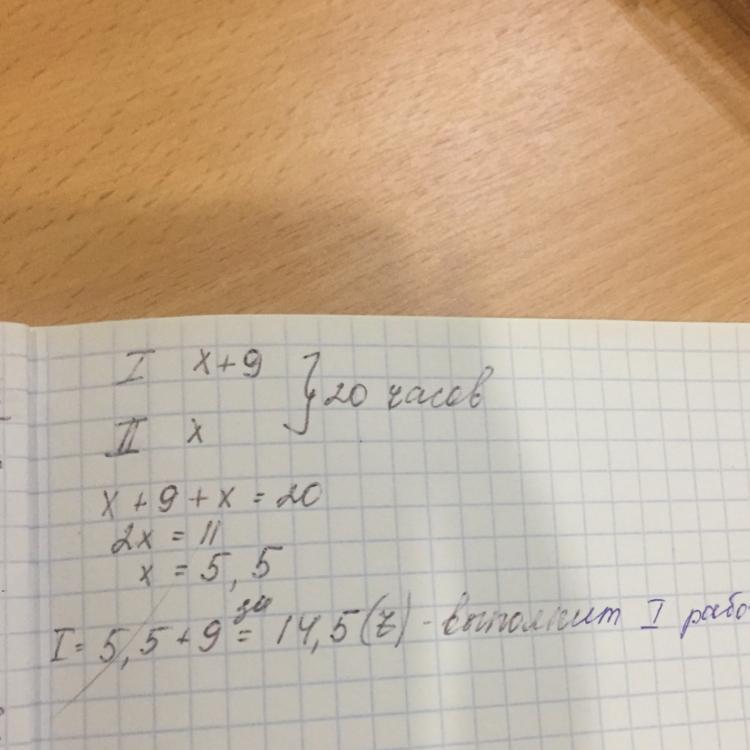 I x+9
II x
} 20 часов
x + 9 + x = 20
2x = 11
x = 5,5
за
I = 5,5 + 9 = 14,5 (ч) - выполнит I